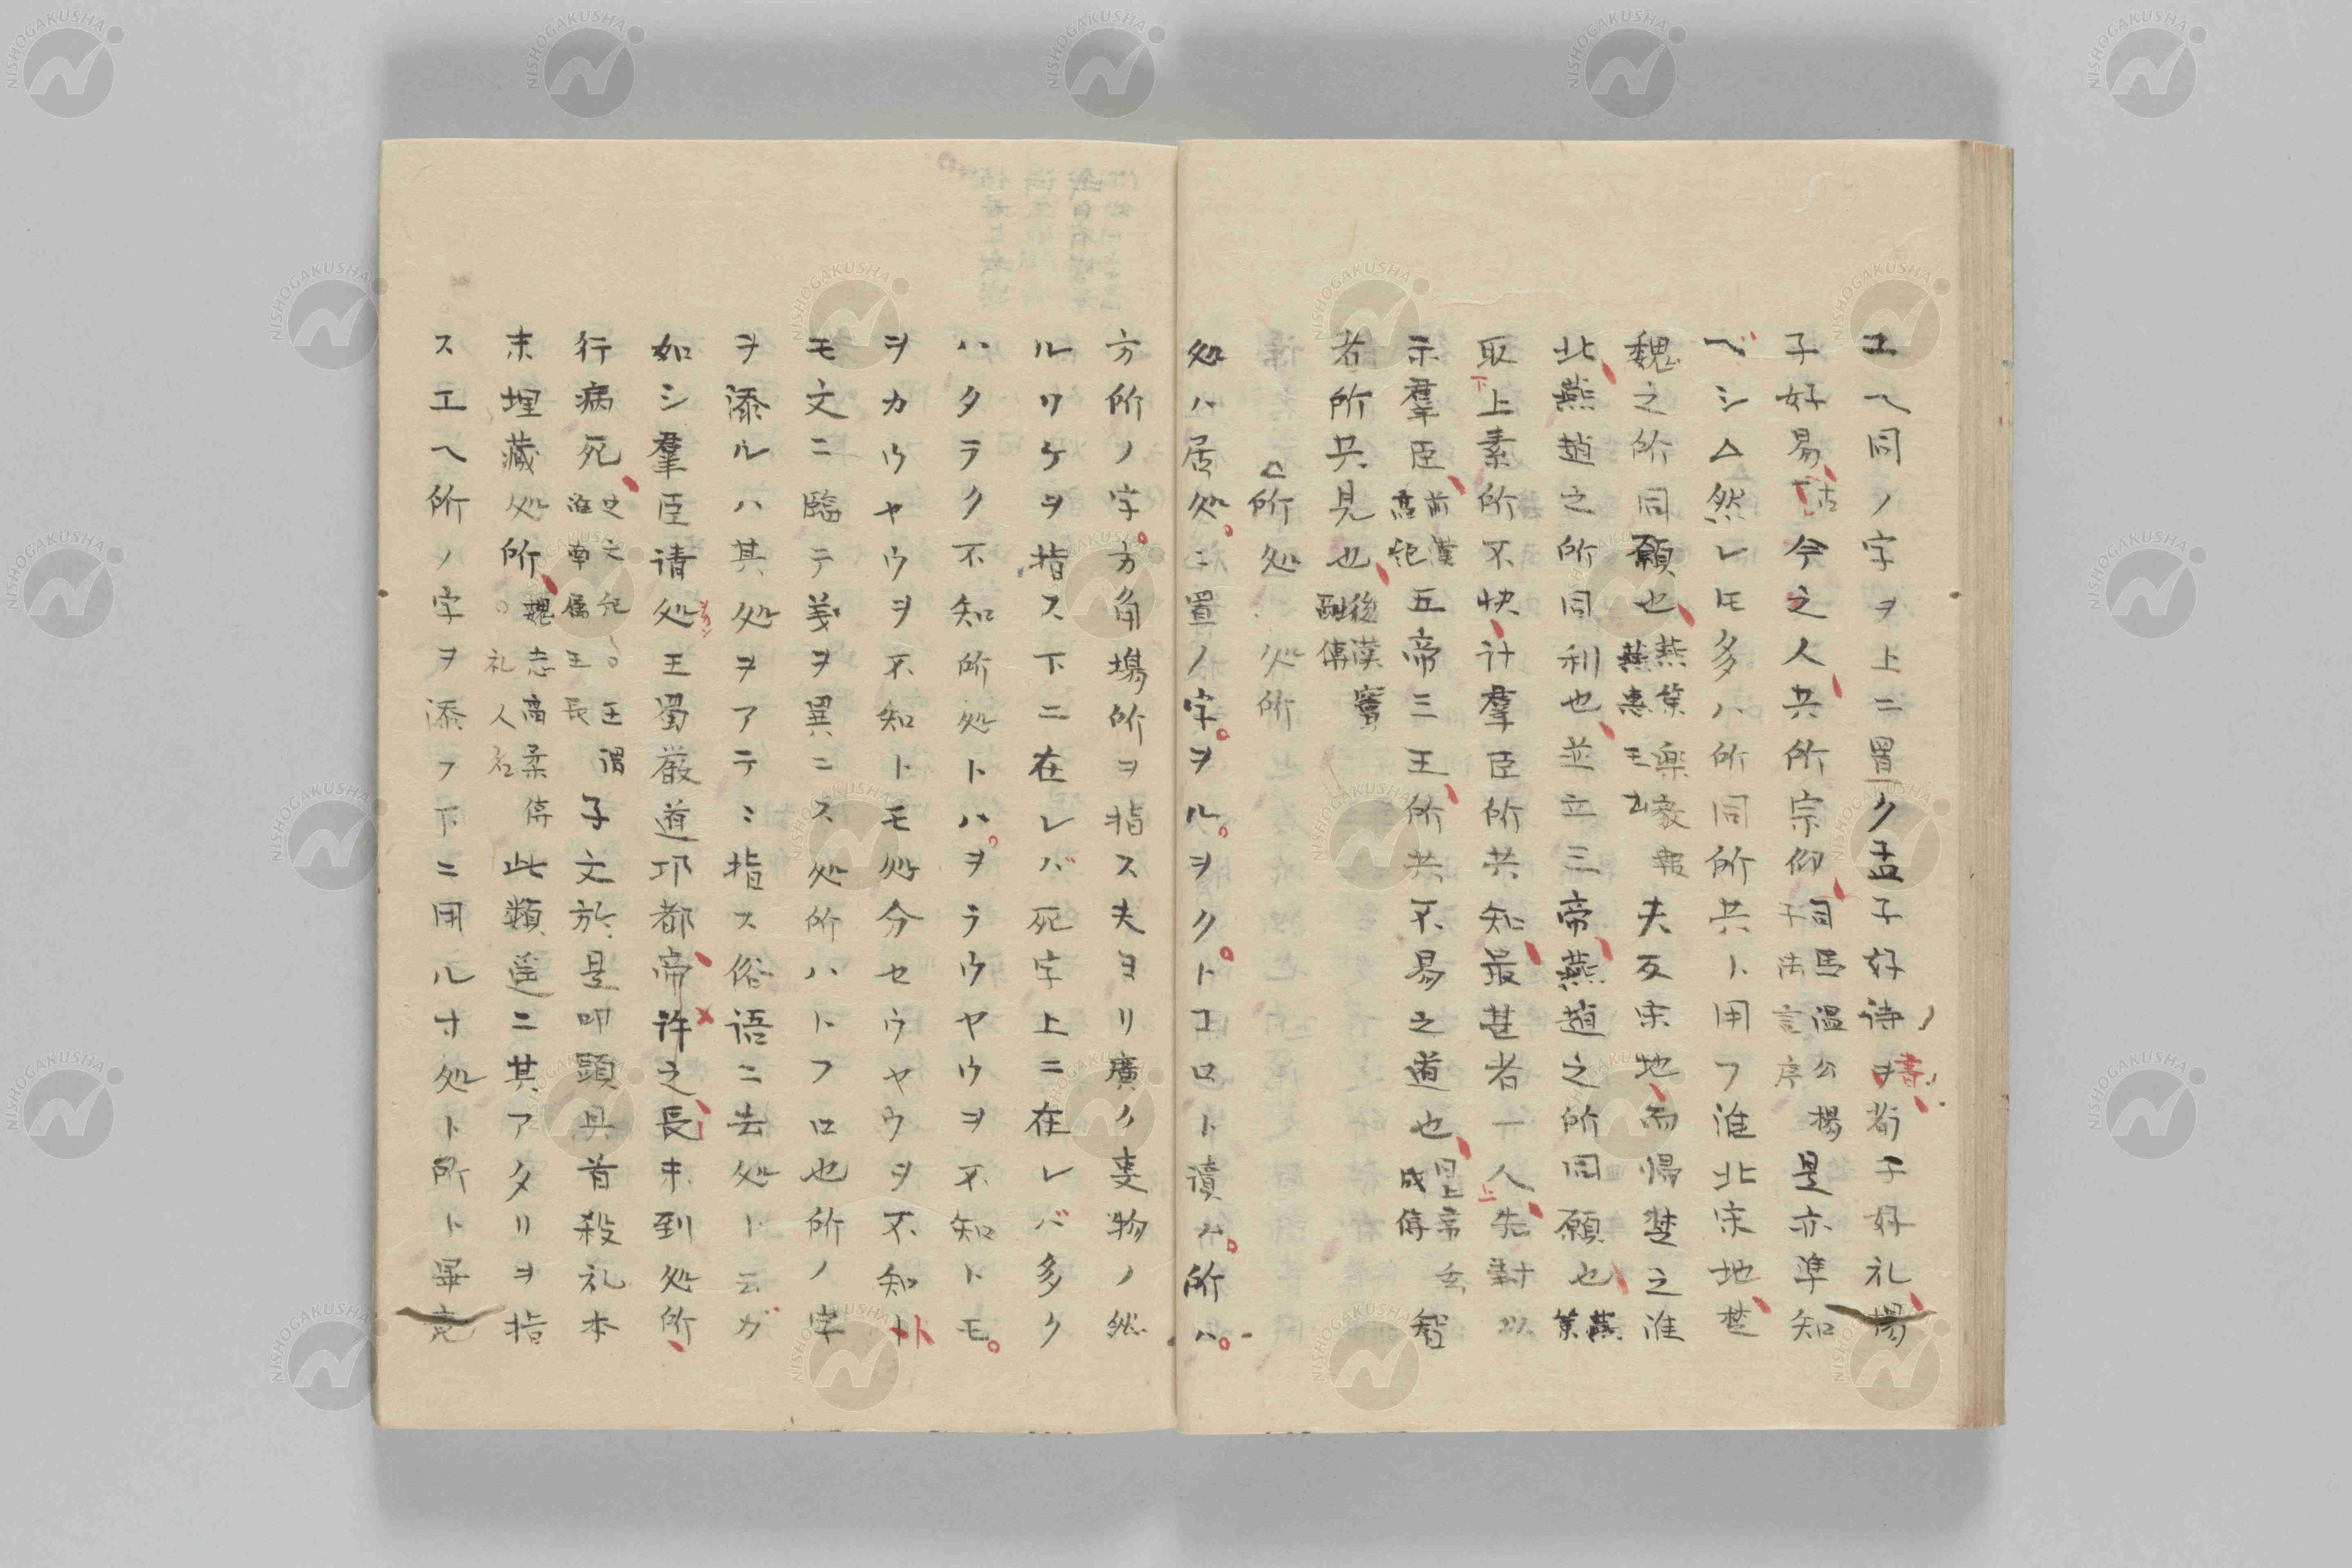 エヘ同ノ字ヲ上ニ置ク孟子好詩ヲ書荀子好礼揚
子好易法今之人共所宗仰司馬温公揚子法言序是亦準知
ベシ△然レ𪜈多ハ所同所共ト用フ淮北宋地楚
魏之所同願也燕策楽毅報燕惠王書夫反宋地而帰楚之淮
北燕趙之所同利也並立三帝燕趙之所同願也燕策
取上素所不快計羣臣所共知最甚者一人先封以
示羣臣前漢高紀五帝三王所共不易之道也同上韋玄成傳智
者所共見也後漢竇融傳
△所処 処所
処ハ居処ニ置ノ字ヲル。ヲク。トコロト讀ム。所ハ
方所ノ字。方角塲所ヲ指ス夫ヨリ廣ク叓物ノ然
ルワケヲ指ス下ニ在レバ死字上ニ在レバ多ク
ハタラク不知所処トハ。ヲラウヤウヲ不知トモ。
ヲカウヤウヲ不知トモ処分セウヤウヲ不知ト
モ文ニ臨テ義ヲ異ニス処所ハトコロ也所ノ字
ヲ添ルハ其処ヲアテヽ指ス俗語ニ去処ト云ガ
如シ羣臣请処王蜀厳道邛都帝許之長未到処所
行病死史文紀。王謂淮南厲王長子文於是叩頭具首殺礼本
末埋藏処所魏志高柔傳。礼人名此類遥ニ其アタリヲ指
スエヘ所ノ字ヲ添フ下ニ用ル寸処ト所ト畢竟